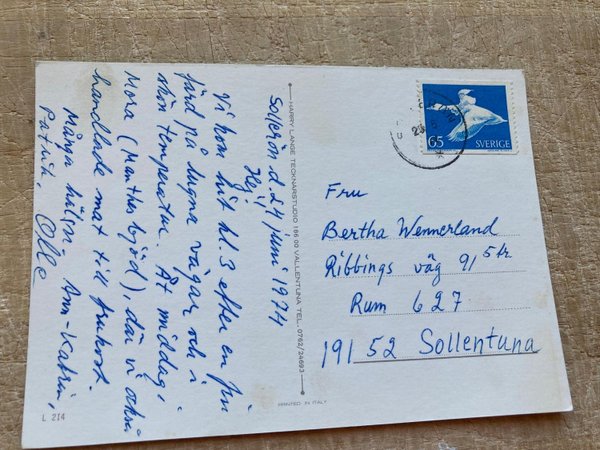 Sollerön d. 24 juni 1974
Hej!
Vi kom hit kl 3 efter en fin
färd på lugna vägar och i
skön temperatur. Åt middag i
Mora (Manthes bjöd), där vi också
handlade mat till frukost.
Många hälsn. Ann-Katrin,
Patrik, Olle
L 214
HARRY LANGE TECKNARSTUDIO 186 00 VALLENTUNA TEL. 0762/24693
PRINTED IN ITALY
65 SVERIGE
Fru
Bertha Wennerland
Ribbings väg 91 5 tr.
Rum 627
191 52 Sollentuna